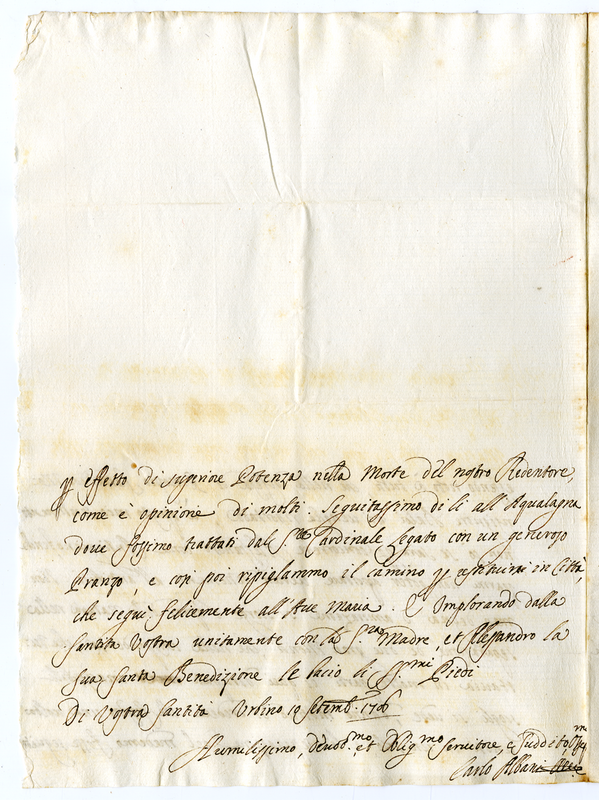 p effetto di superiore Potenza nella Morte del nostro Redentore,
come è opinione di molti. Seguitassimo di lì all'Aqualagna
doue fossimo trattati dal Sr Cardinale Legato con un generoso
Pranzo, e con poi ripiglammo il camino p restituirci in Città,
che seguì felicemente all'Aue Maria. E Implorando dalla
Santità Vostra unitamente con la Sra Madre, et Alessandro la
sua Santa Benedizione le bacio li SSmi Piedi
Di Vostra Santità Urbino 19 Settemb. 1706
Humilissimo, deuotmo, et Obligmo Seruitore, e Suddito
Carlo Albani